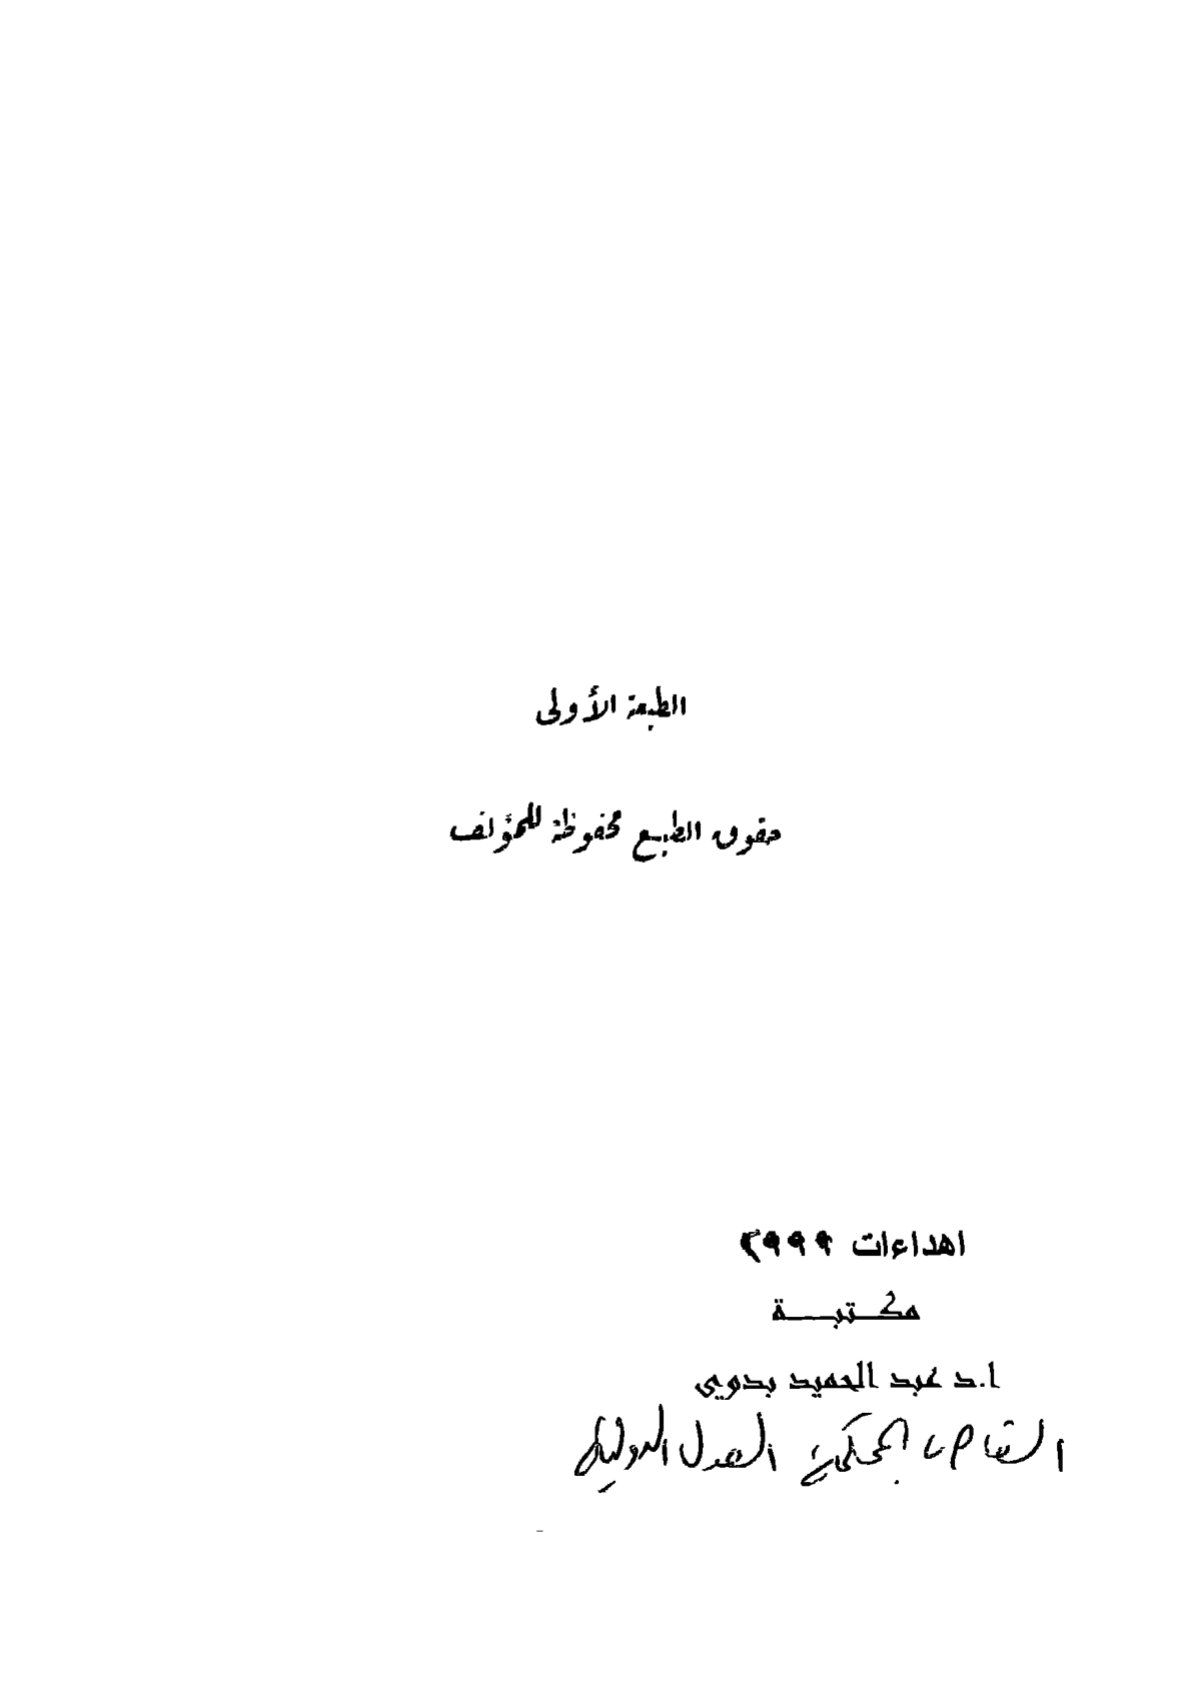 الطبعة الأولى
حقوق الطبع محفوظة للمؤلف
اهداءات ٢٩٩٩
مكتبة
ا.د عبد الحميد بدوي
القاضى بمحكمة العدل الدولية